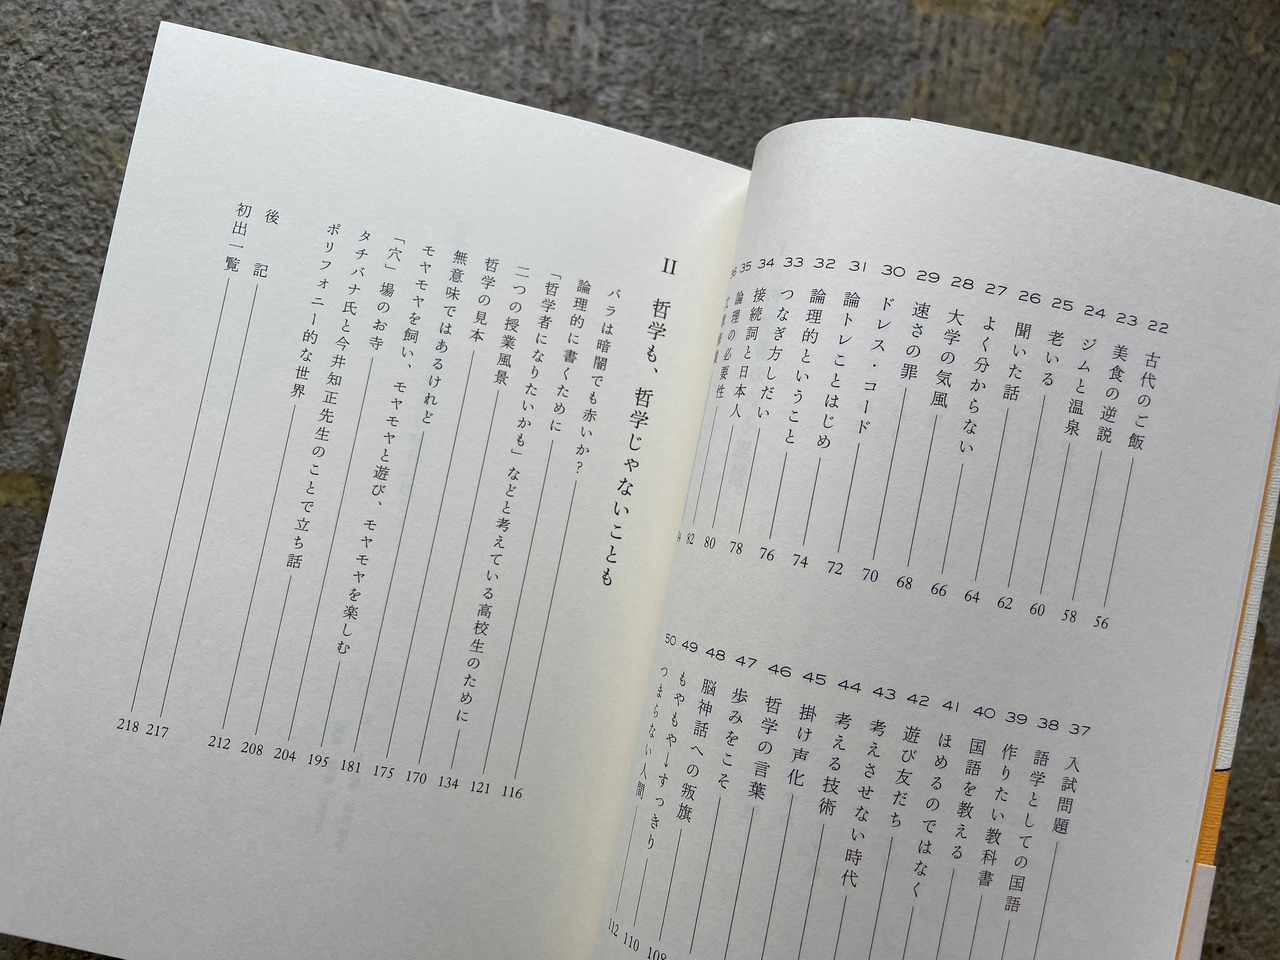 22 古代のご飯 56
23 美食の逆説 58
24 ジムと温泉 60
25 老いる 62
26 聞いた話 64
27 よく分からない 66
28 大学の気風 68
29 速さの罪 70
30 ドレス・コード 72
31 論トレことはじめ 74
32 論理的ということ 76
33 つなぎ方しだい 78
34 接続詞と日本人 80
35 論理の必要性 82
36
37 入試問題
38 語学としての国語
39 作りたい教科書
40 国語を教える
41 ほめるのではなく
42 遊び友だち
43 考えさせない時代
44 考える技術
45 掛け声化
46 哲学の言葉
47 歩みをこそ
48 脳神話への叛旗 108
49 もやもや→すっきり 110
50 つまらない人間 112
II 哲学も、哲学じゃないことも
バラは暗闇でも赤いか? 116
論理的に書くために 121
「哲学者になりたいかも」などと考えている高校生のために 134
二つの授業風景 170
哲学の見本 175
無意味ではあるけれど 181
モヤモヤを飼い、モヤモヤと遊び、モヤモヤを楽しむ 195
「穴」場のお寺 204
タチバナ氏と今井知正先生のことで立ち話 208
ポリフォニー的な世界 212
後記 217
初出一覧 218